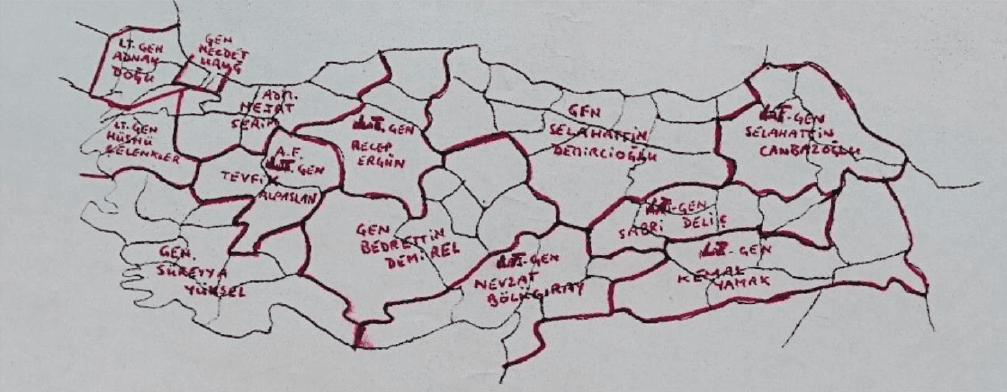 LT. GEN
ADNAN
DOĞU
GEN
NECDET
URUĞ
ADM.
NEJAT
SERİM
LT. GEN
HÜSNÜ
ÇELENKLER
A.F.
LT. GEN
TEVFİK
ALPASLAN
LT. GEN
RECEP
ERGUN
GEN
SELAHATTİN
DEMİRCİOĞLU
LT. GEN
SELAHATTİN
CANBAZOĞLU
GEN.
SÜREYYA
YÜKSEL
GEN
BEDRETTİN
DEMİREL
LT. GEN
NEVZAT
BÖLÜGİRAY
LT. GEN
SABRİ DELİÇ
LT. GEN
KEMAL
YAMAK